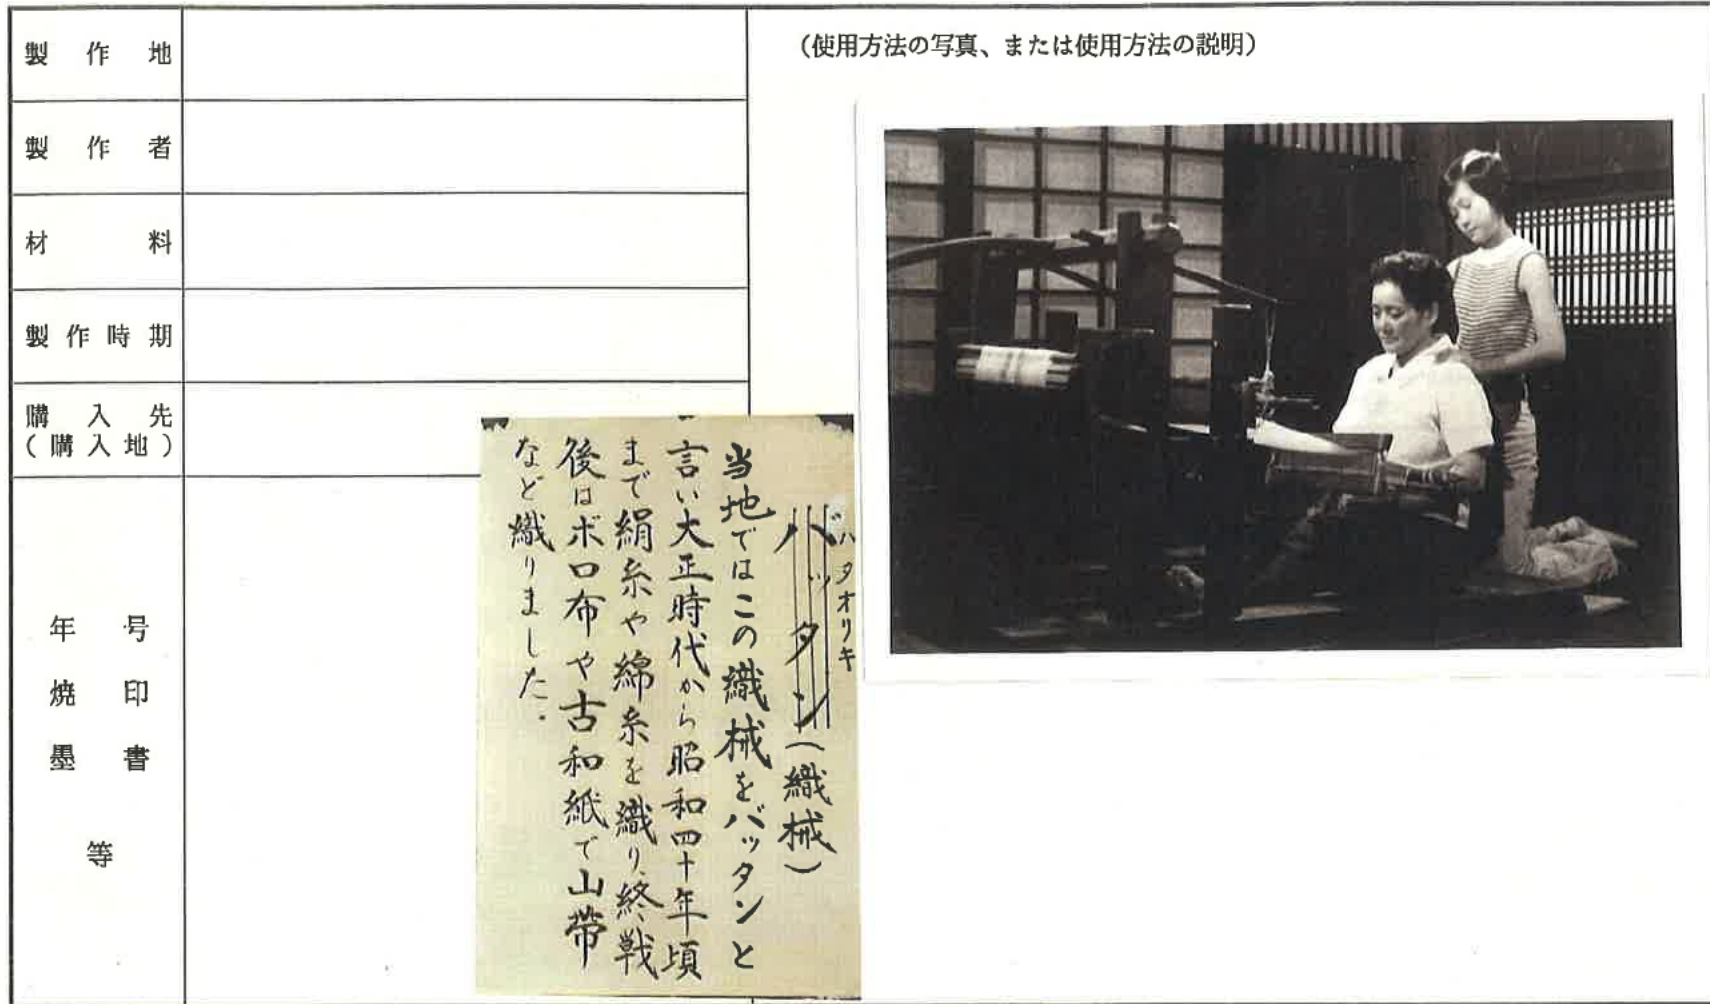 製作地
製作者
材料
製作時期
購入先
(購入地)
年号
焼印
墨書
等
(使用方法の写真、または使用方法の説明)
ハタオリキ
バッタン(織械)
当地ではこの織械をバッタンと
言い大正時代から昭和四十年頃
まで絹糸や綿糸を織り、終戦
後はボロ布や古和紙で山帯
など織りました.